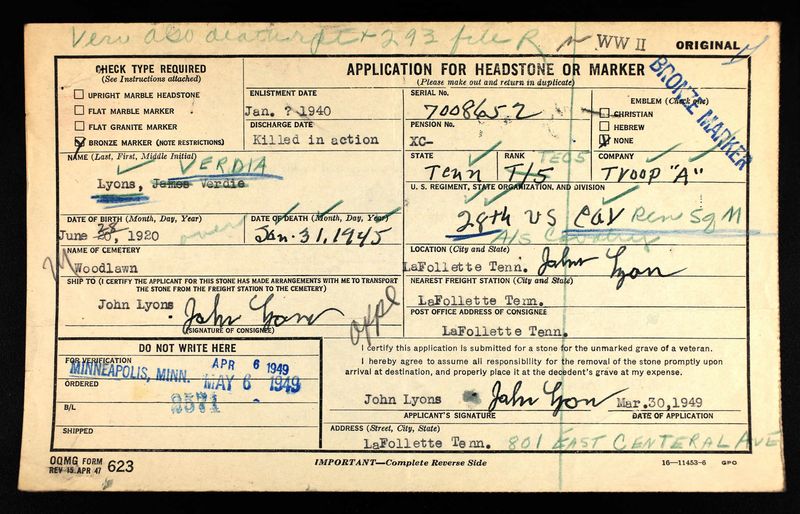 Verv also deathrpt + 293 file R
WW II
ORIGINAL
CHECK TYPE REQUIRED
(See Instructions attached)
UPRIGHT MARBLE HEADSTONE
FLAT MARBLE MARKER
FLAT GRANITE MARKER
BRONZE MARKER (NOTE RESTRICTIONS)
APPLICATION FOR HEADSTONE OR MARKER
(Please make out and return in duplicate)
BRONZE MARKER
ENLISTMENT DATE
Jan. ? 1940
DISCHARGE DATE
Killed in action
SERIAL No.
7008652
PENSION No.
XC-
EMBLEM (Check one)
CHRISTIAN
HEBREW
NONE
NAME (Last, First, Middle Initial)
VERDIA
Lyons, James Verdie
STATE
Tenn
RANK
TEC5
T/5
COMPANY
Troop "A"
U. S. REGIMENT, STATE ORGANIZATION, AND DIVISION
28th US Cav Rcn Sq M
A/S Cavalry
DATE OF BIRTH (Month, Day, Year)
28
June 30, 1920
over
DATE OF DEATH (Month, Day, Year)
Jan. 31, 1945
NAME OF CEMETERY
Woodlawn
LOCATION (City and State)
LaFollette Tenn. John Lyon
SHIP TO (I CERTIFY THE APPLICANT FOR THIS STONE HAS MADE ARRANGEMENTS WITH ME TO TRANSPORT
THE STONE FROM THE FREIGHT STATION TO THE CEMETERY)
John Lyons John Lyon
(SIGNATURE OF CONSIGNEE)
NEAREST FREIGHT STATION (City and State)
LaFollette Tenn.
POST OFFICE ADDRESS OF CONSIGNEE
LaFollette Tenn.
DO NOT WRITE HERE
FOR VERIFICATION
APR 6 1949
MINNEAPOLIS, MINN. MAY 6 1949
ORDERED
2571
B/L
SHIPPED
I certify this application is submitted for a stone for the unmarked grave of a veteran.
I hereby agree to assume all responsibility for the removal of the stone promptly upon
arrival at destination, and properly place it at the decedent's grave at my expense.
John Lyons John Lyon Mar,30,1949
APPLICANT'S SIGNATURE
DATE OF APPLICATION
ADDRESS (Street, City, State)
LaFollette Tenn. 801 EAST CENTERAL AVE
OQMG FORM
REV 15 APR 47 623
IMPORTANT—Complete Reverse Side
16—11453-6 GPO